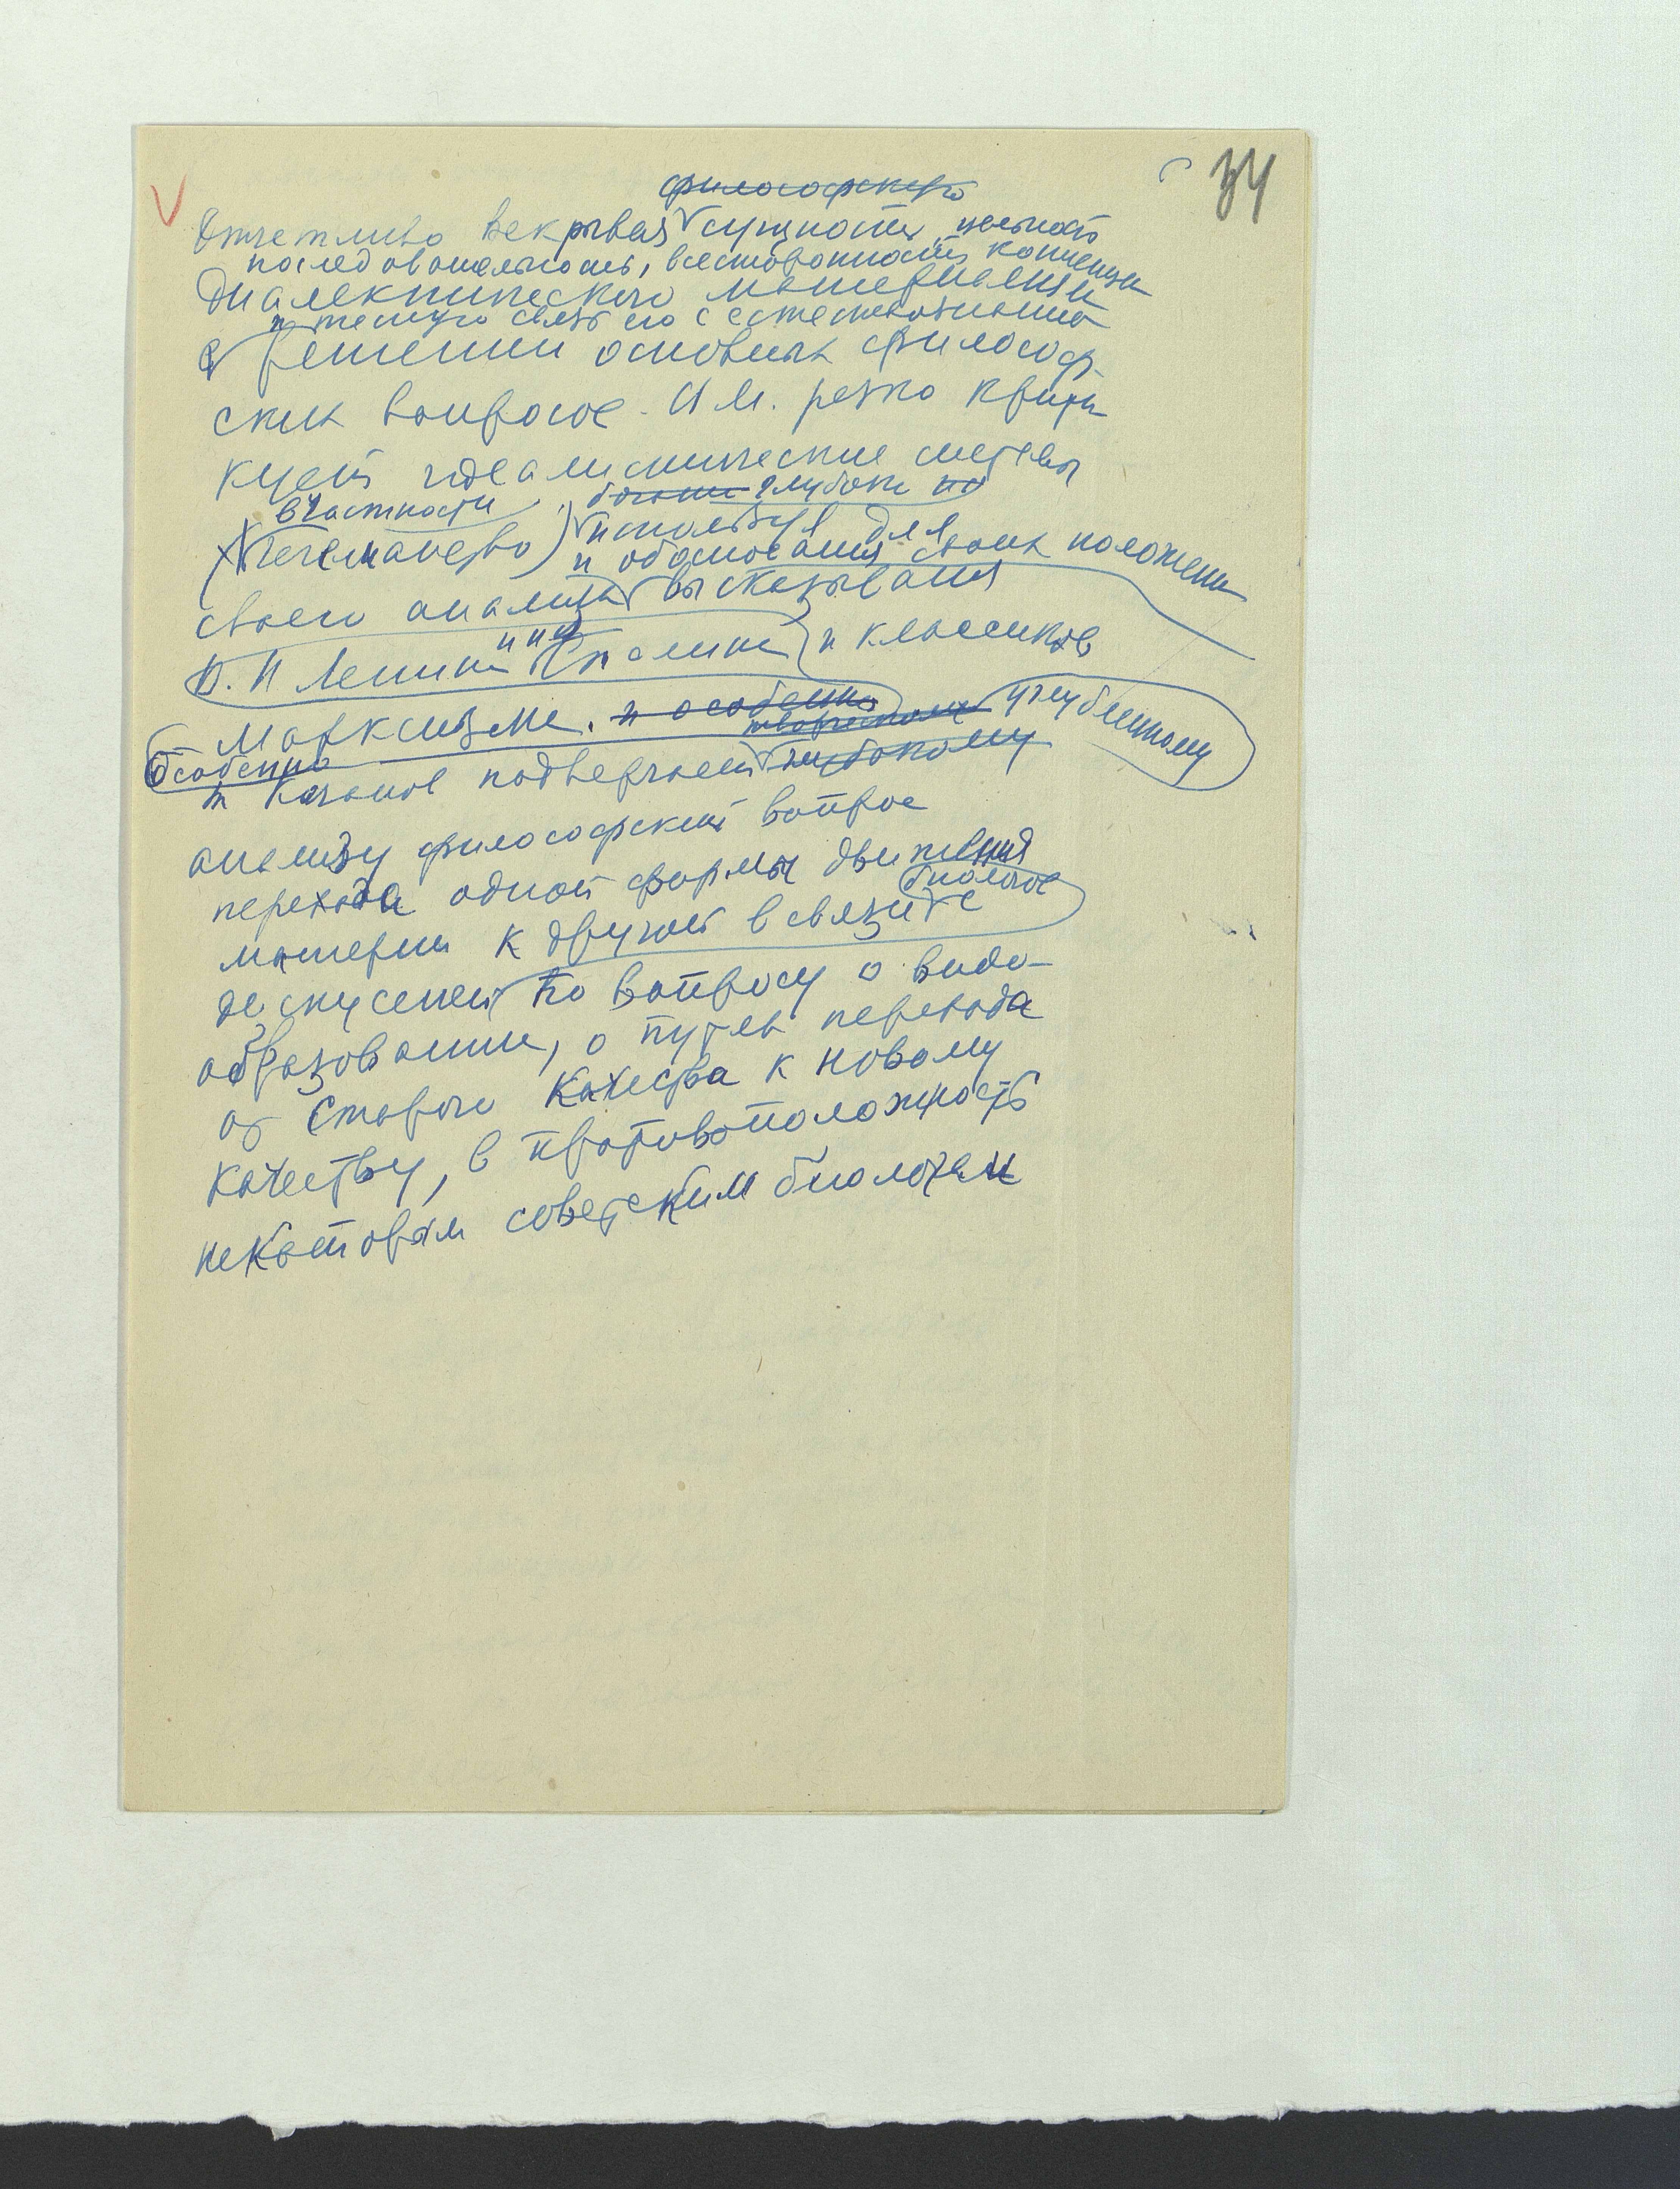 34
философскую
Отчетливо вскрывая сущность, цельность
последовательность, всесторонность концепции
диалектического материализма
и тесную связь его с естествознанием
в решении основных философ-
ских вопросов. И.М. резко крити
кует идеалистические системы
в частности глубоко
используя для
и обоснования своих положений
своего анализа высказывания
В. И Ленина и Сталина и классиков
марксизма. и особенно углубленному
Особенно творческому
подвергает глубокому
анализу философский вопрос
перехода одной формы движения
биологов
материи к другой в связи с
дискуссией по вопросу о видо-
образовании, о путях перехода
от старого качества к новому
качеству, в противоположность
некоторым советским биологам